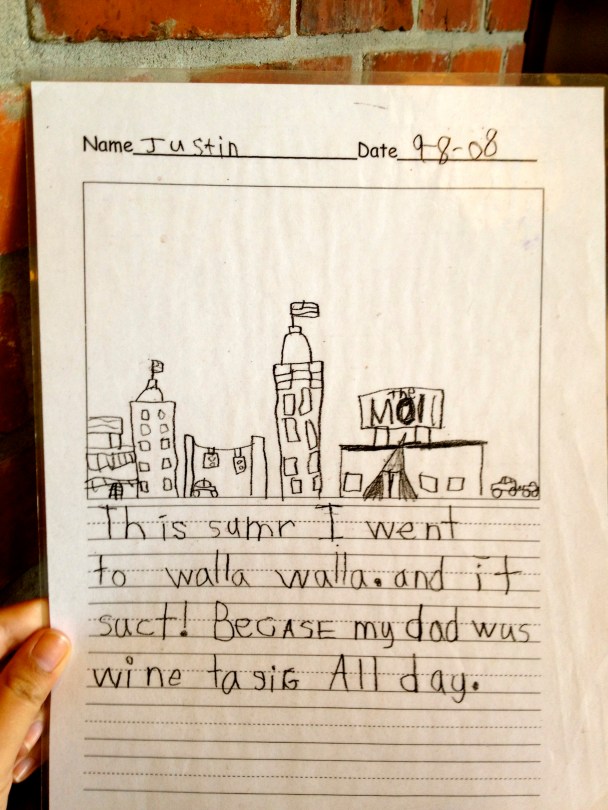 Name Justin Date 9-8-08
The
Moll
This sumr I went
to walla walla. and it
suct! BecASE my dad wus
wine tasiG All day.